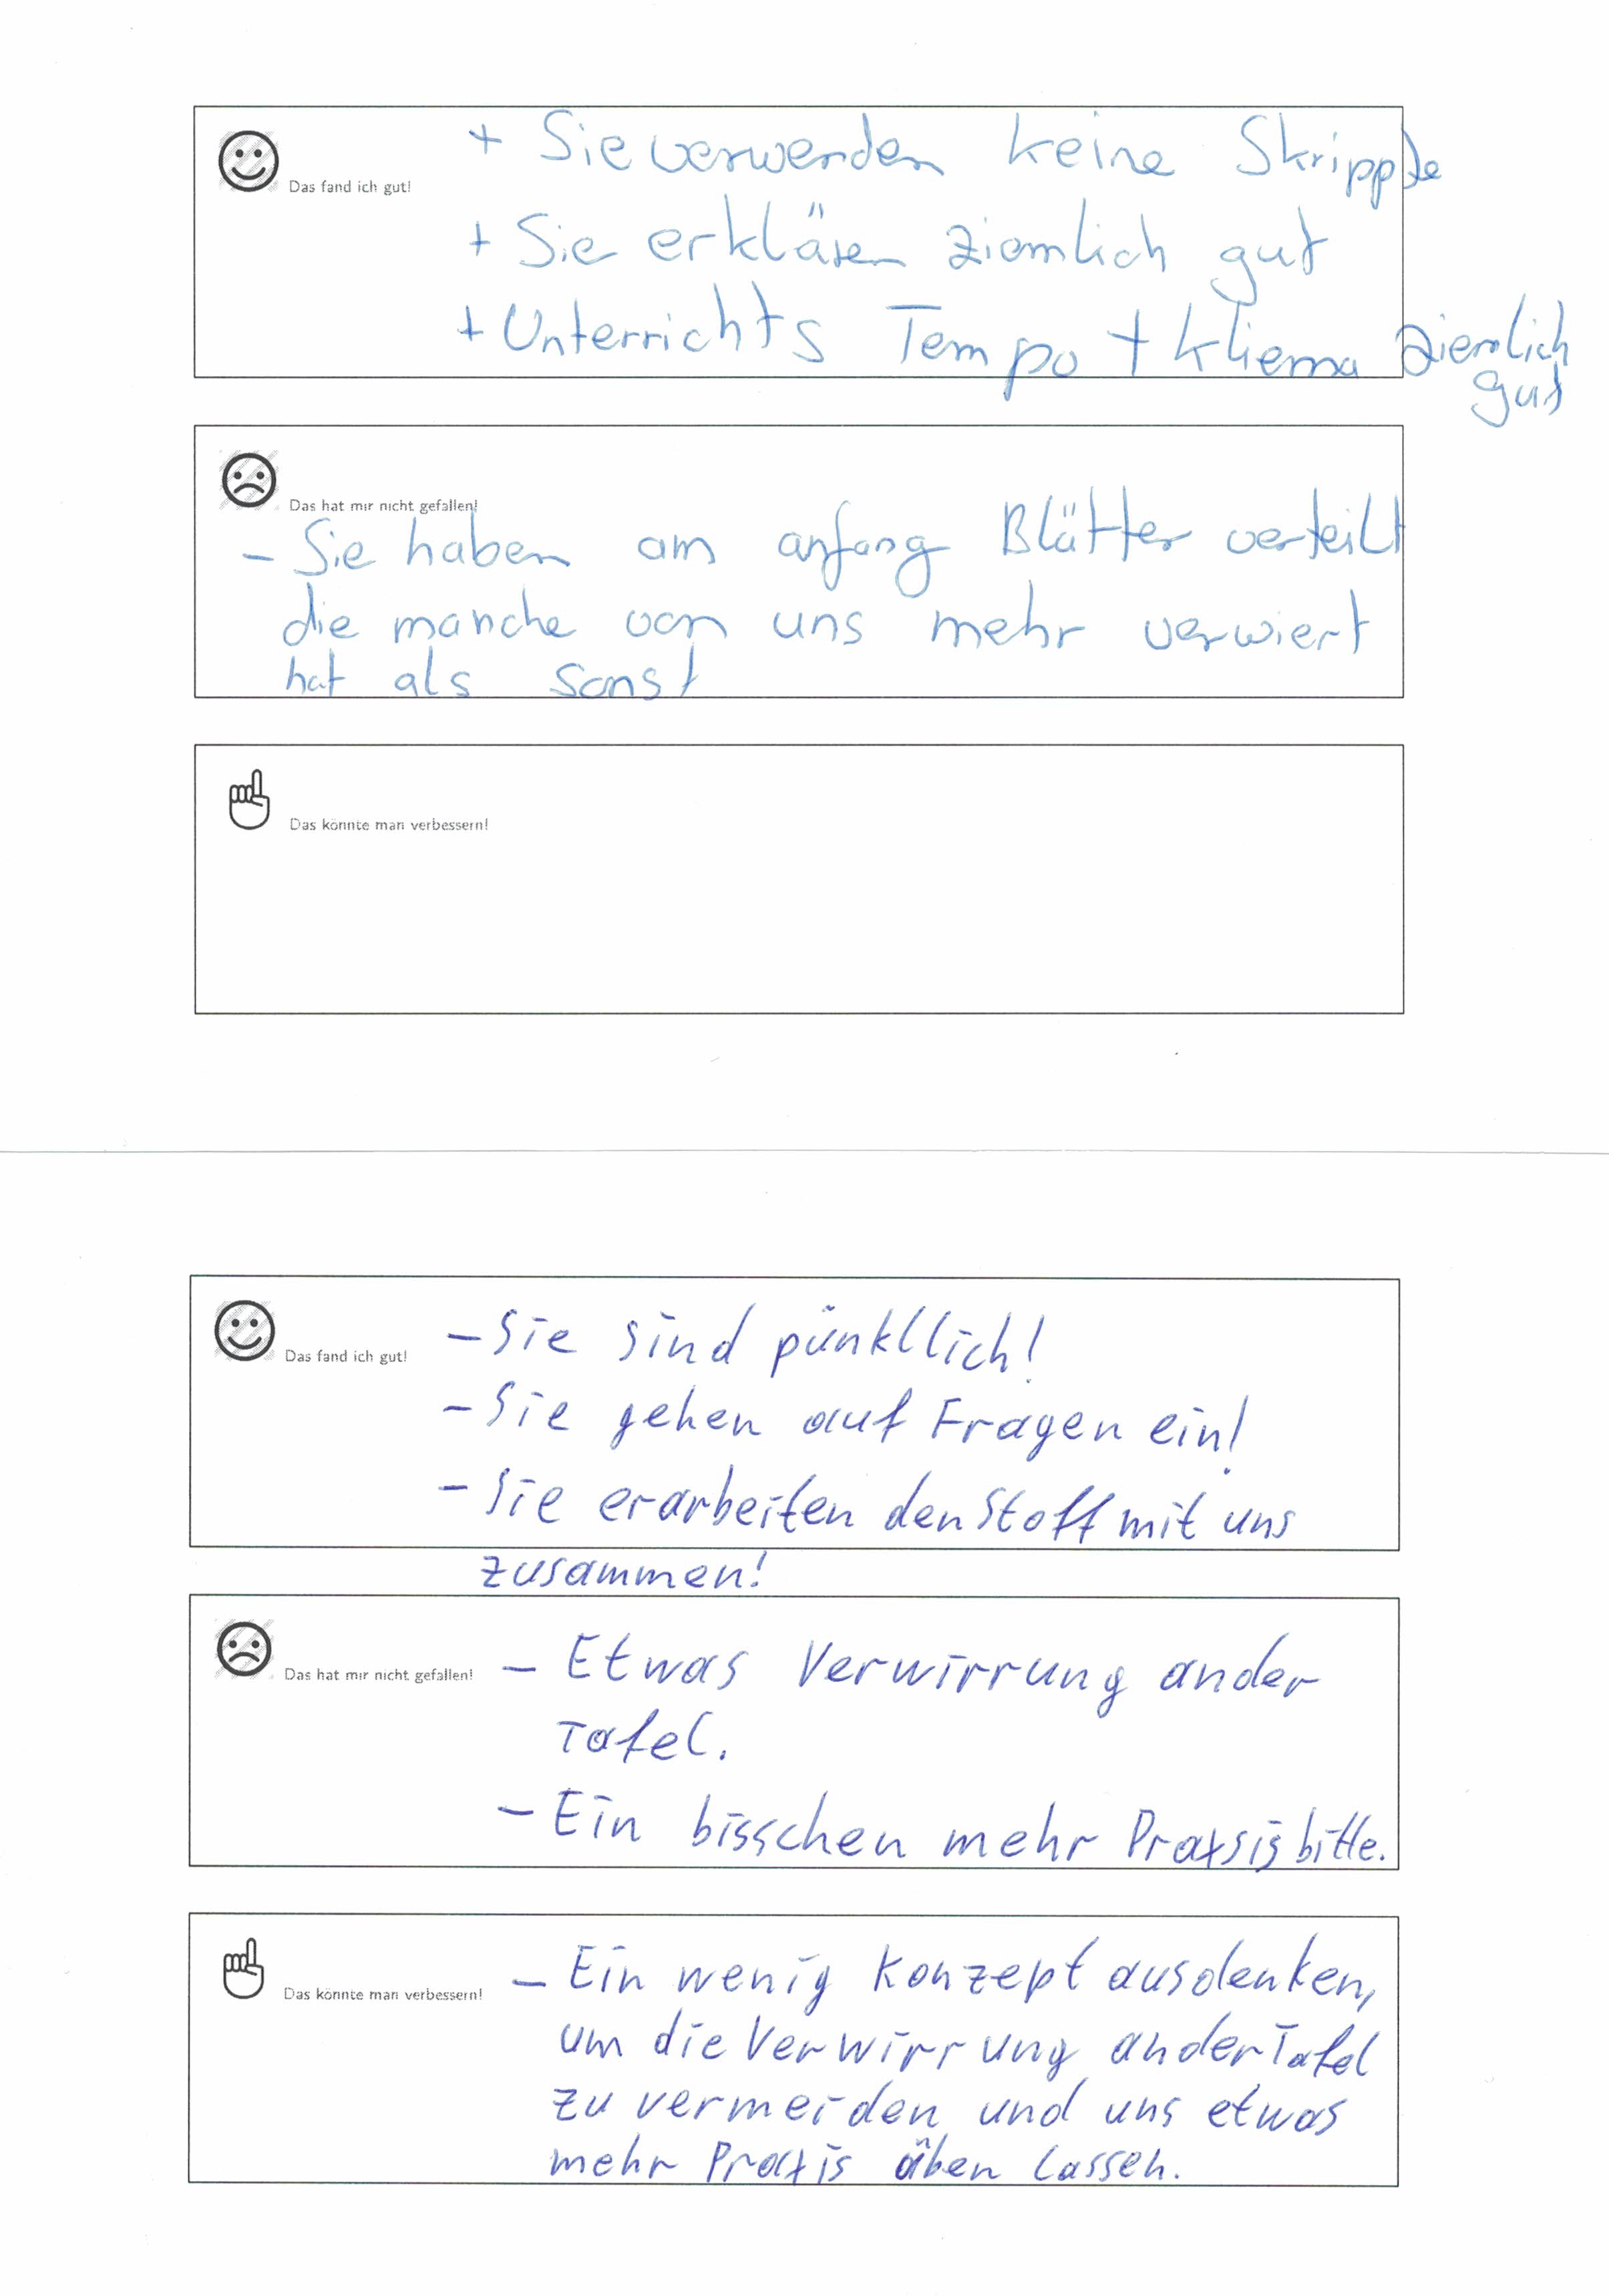 + Sie verwenden keine Skrippte
Das fand ich gut!
+ Sie erklären ziemlich gut
+ Unterrichts Tempo + Kliema ziemlich
gut
Das hat mir nicht gefallen!
- Sie haben am anfang Blätter verteilt
die manche von uns mehr verwiert
hat als sonst
Das könnte man verbessern!
- Sie sind pünktlich!
Das fand ich gut!
- Sie gehen auf Fragen ein!
- Sie erarbeiten den Stoff mit uns
zusammen!
Das hat mir nicht gefallen! - Etwas Verwirrung an der
Tafel.
- Ein bisschen mehr Praxsis bitte.
Das könnte man verbessern! - Ein wenig Konzept ausdenken,
um die Verwirrung an der Tafel
zu vermeiden und uns etwas
mehr Praxis üben lassen.